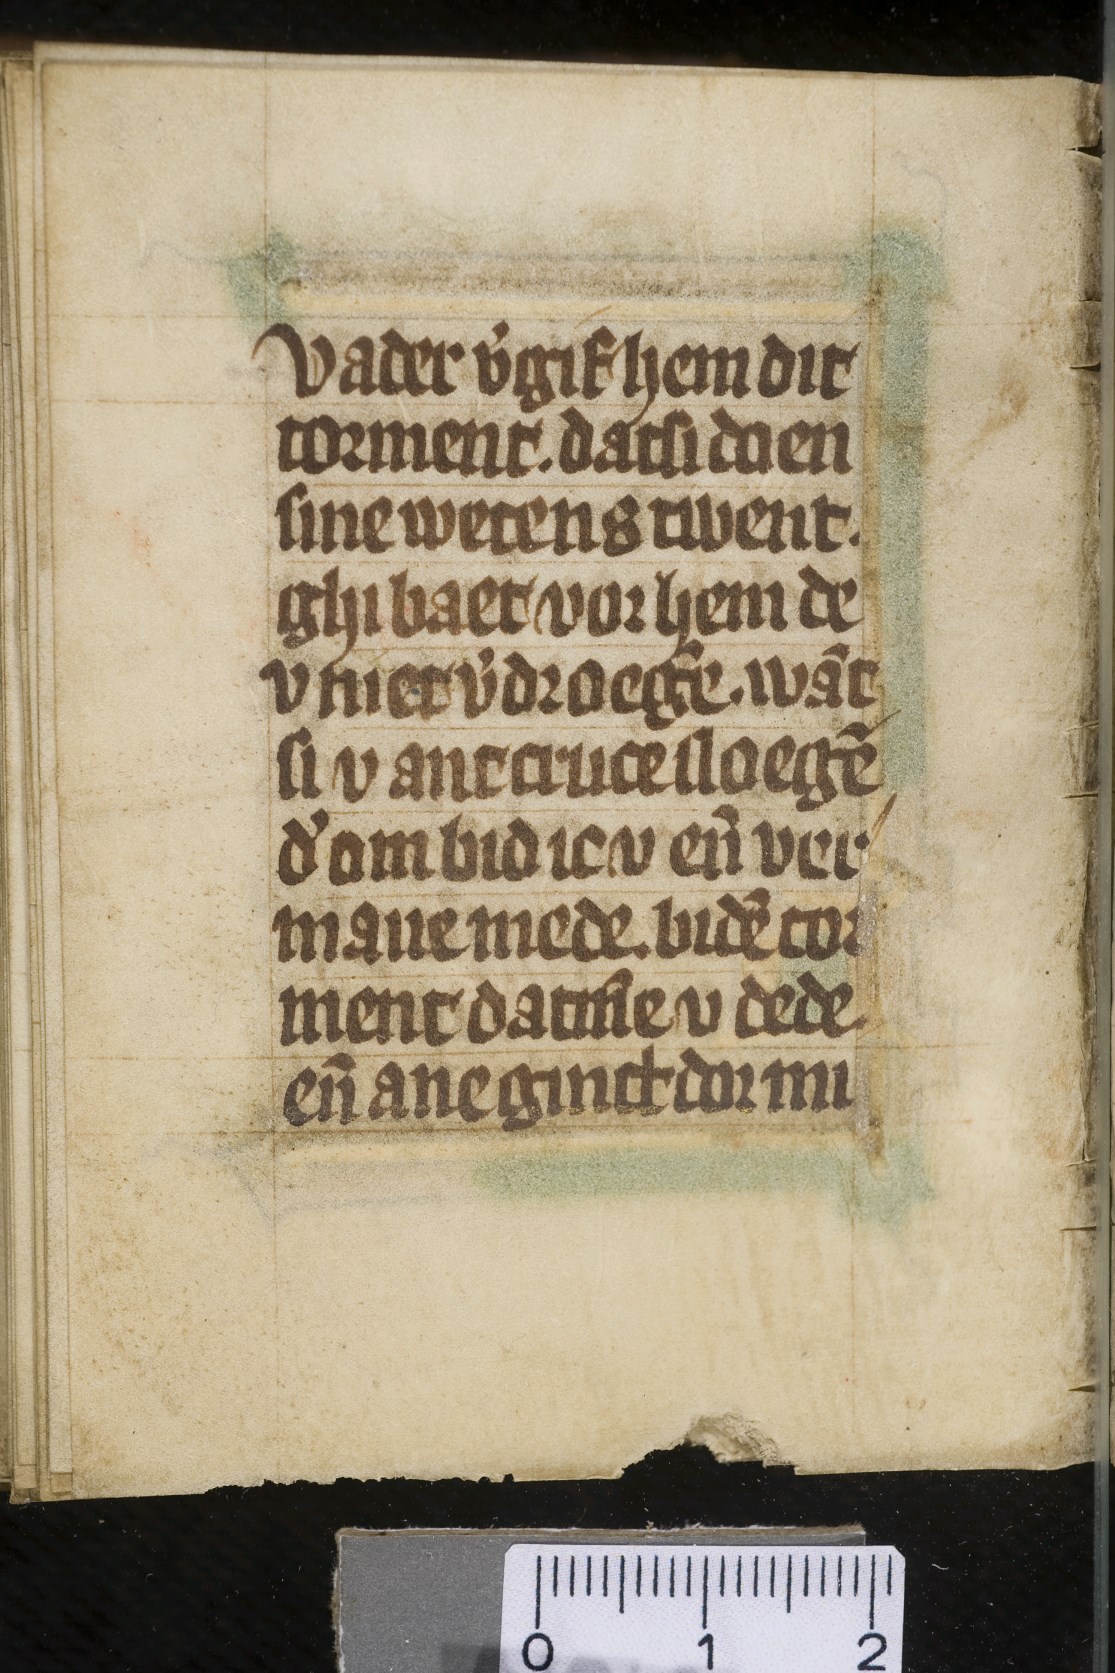 Vader v̾gif hem dit
torment. dat si doen
sine wetens twent.
ghi baet vor hem de
v niet v̾droeghē. wāt
si v ant cruce sloeghē
d̾ om bid ic v en̄ ver
mane mede. bi dē tor
ment dat mē v dede.
en̄ ane ginct dor mi
0 1 2